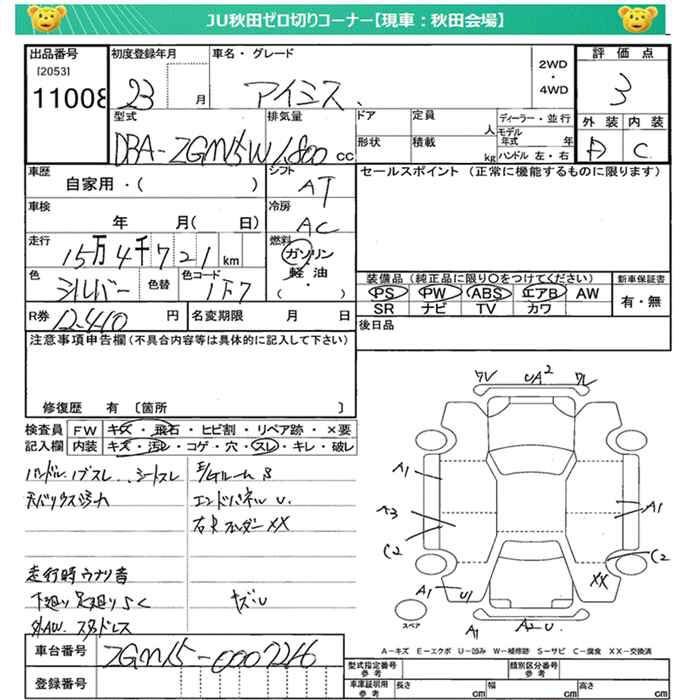 JU秋田ゼロ切りコーナー【現車：秋田会場】
出品番号 初度登録年月 車名・グレード 2WD・4WD 評価点
[2053]
11008 23 月 アイシス 3
型式 排気量 ドア 定員 人 ディーラー・並行 外装 内装
DBA-ZGM15W 1,800 cc 形状 積載 kg モデル年式 年 ハンドル 左・右 D C
車歴 シフト セールスポイント（正常に機能するものに限ります）
自家用・（ ） AT
車検 冷房
年 月（ 日） AC
走行 燃料
15万4千721km ガソリン
軽油
（ ・ ）
色 色替 色コード 装備品（純正品に限り○をつけてください） 新車保証書
シルバー 1F7 PS PW ABS エアB AW 有・無
SR ナビ TV カワ
R券 12,410 円 名変期限 月 日 後日品
注意事項申告欄（不具合内容等は具体的に記入して下さい）
修復歴 有 〔箇所 〕
検査員 FW キズ・飛石・ヒビ割・リペア跡・×要
記入欄 内装 キズ・汚レ・コゲ・穴・スレ・キレ・破レ
ハンドル、ノブスレ、シートスレ
エンドパネル U.
走行時ウナリ音
下廻り足廻りサビ
外AW. スタッドレス
ヤブレ
ワレ UA2 ワレ
A1
A3
C2
A1
C2
XX
A1 U1
A1 A2 U.
スペア
A－キズ E－エクボ U－凹み W－補修跡 S－サビ C－腐食 XX－交換済
車台番号 ZGM15-0007216
登録番号
型式指定番号 参考 類別区分番号 参考
車庫証明用 参考 長さ cm 幅 cm 高さ cm